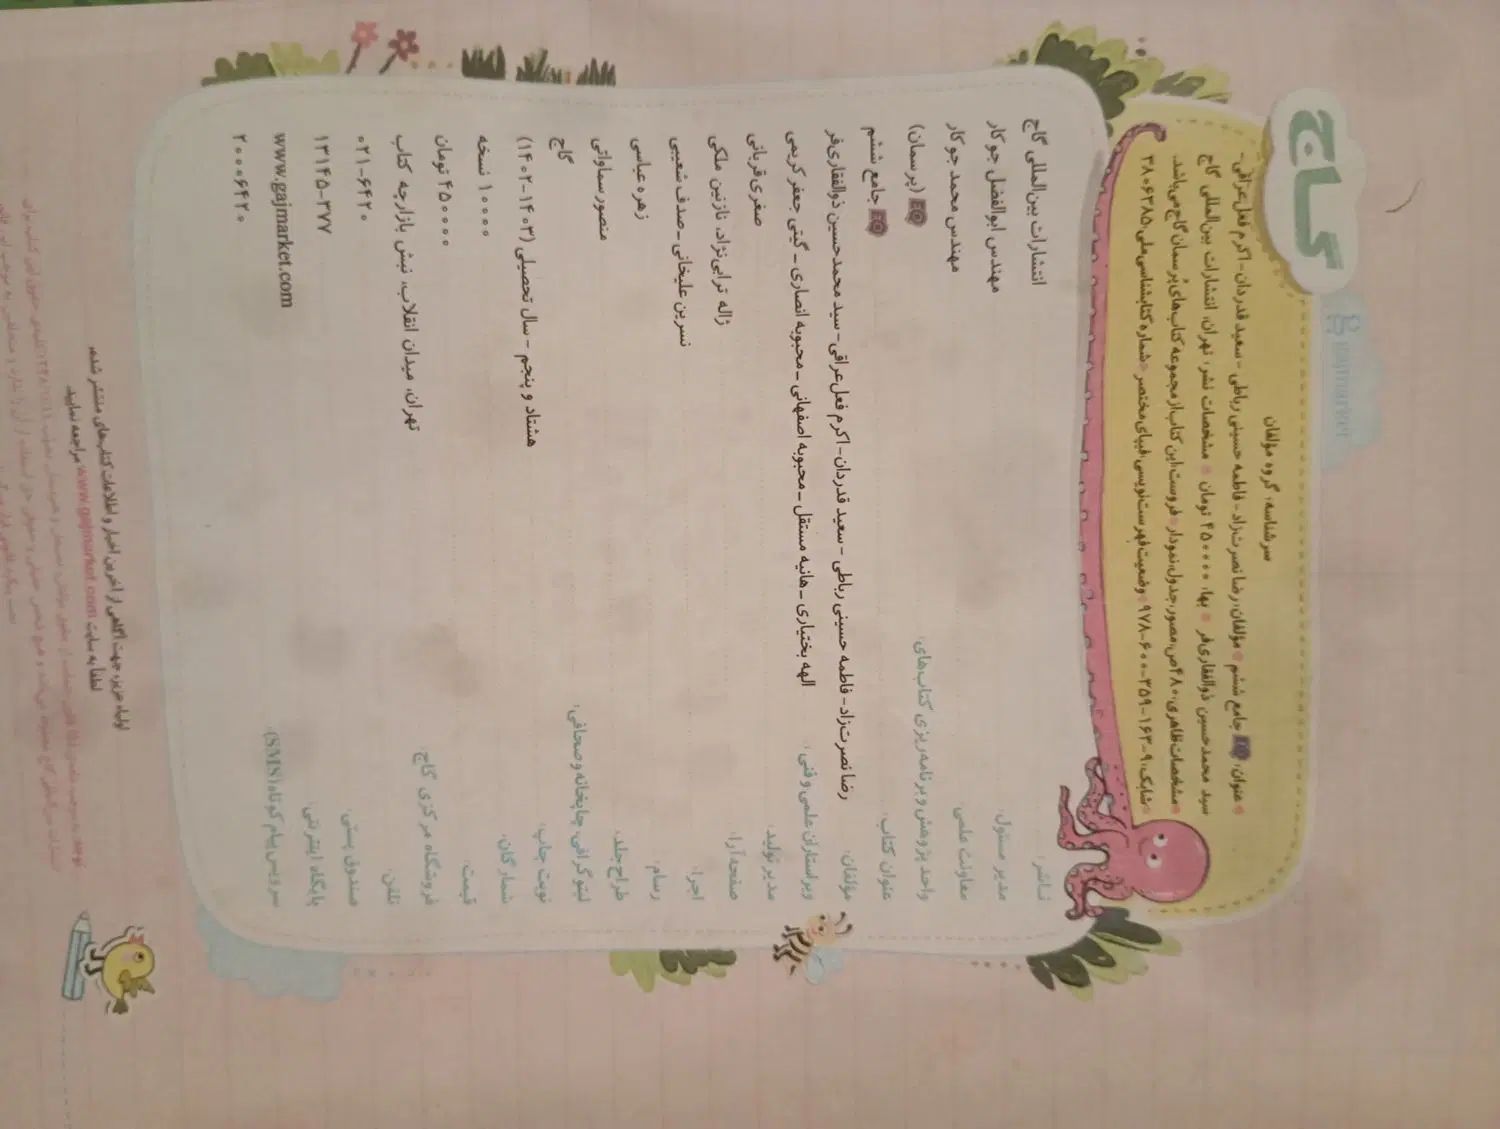 گاج
gajmarket
سرشناسه: گروه مؤلفان
عنوان: EQ جامع ششم مؤلفان: رضا نصرت‌زاد - فاطمه حسینی رباطی - سعید قدردان - اکرم فعل‌عراقی -
سید محمدحسین ذوالفقاری‌فر بها: ۴۵۰۰۰۰ تومان مشخصات نشر: تهران: انتشارات بین‌المللی گاج
مشخصات ظاهری: ۴۸۰ص: مصور، جدول، نمودار فروست: این کتاب از مجموعه کتاب‌های پُرسمان گاج می‌باشد.
شابک: ۹-۱۶۳-۳۵۹-۶۰۰-۹۷۸ وضعیت فهرست‌نویسی: فیپای مختصر شماره کتابشناسی ملی: ۳۸۰۶۳۸۵
ناشر: انتشارات بین‌المللی گاج
مدیر مسئول: مهندس ابوالفضل جوکار
معاونت علمی: مهندس محمد جوکار
واحد پژوهش و برنامه‌ریزی کتاب‌های: EQ (پرسمان)
عنوان کتاب: EQ جامع ششم
مؤلفان: رضا نصرت‌زاد - فاطمه حسینی رباطی - سعید قدردان - اکرم فعل‌عراقی - سید محمدحسین ذوالفقاری‌فر
ویراستاران علمی و فنی: الهه بختیاری - هانیه مستقل - محبوبه اصفهانی - محبوبه انصاری - گیتی جعفر کریمی
مدیر تولید: صغری قربانی
صفحه‌آرا: ژاله ترابی‌نژاد، نازنین ملکی
اجرا: نسرین علیخانی - صدف شعیبی
رسام: زهره عباسی
طراح جلد: منصور سماواتی
لیتوگرافی، چاپخانه و صحافی: گاج
نوبت چاپ: هشتاد و پنجم - سال تحصیلی (۱۴۰۳-۱۴۰۲)
شمارگان: ۱۰۰۰۰ نسخه
قیمت: ۴۵۰۰۰۰ تومان
فروشگاه مرکزی گاج: تهران، میدان انقلاب، نبش بازارچه کتاب
تلفن: ۰۲۱-۶۴۲۰
صندوق پستی: ۱۳۱۴۵-۳۷۷
پایگاه اینترنتی: www.gajmarket.com
سرویس پیام کوتاه (SMS): ۲۰۰۰۶۴۲۰
اولیاء عزیز، جهت آگاهی از آخرین اخبار و اطلاعات کتاب‌های منتشر شده،
لطفاً به سایت www.gajmarket.com مراجعه نمایید.